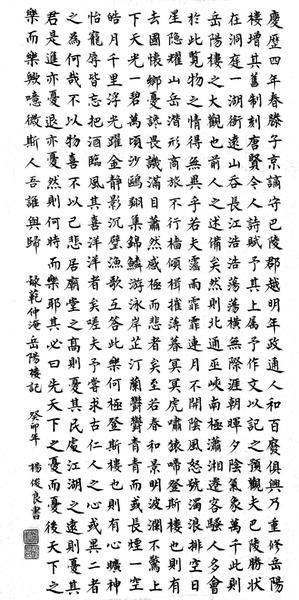 慶歷四年春滕子京謫守巴陵郡越明年政通人和百廢俱興乃重修岳陽
樓增其舊制刻唐賢今人詩賦于其上屬予作文以記之予觀夫巴陵勝狀
在洞庭一湖銜遠山吞長江浩浩蕩蕩橫無際涯朝暉夕陰氣象萬千此則
岳陽樓之大觀也前人之述備矣然則北通巫峽南極瀟湘遷客騷人多會
於此覽物之情得無異乎若夫霪雨霏霏連月不開陰風怒號濁浪排空日
星隱耀山岳潛形商旅不行檣傾楫摧薄暮冥冥虎嘯猿啼登斯樓也則有
去國懷鄉憂讒畏譏滿目蕭然感極而悲者矣至若春和景明波瀾不驚上
下天光一碧萬頃沙鷗翔集錦鱗游泳岸芷汀蘭鬱鬱青青而或長煙一空
皓月千里浮光躍金靜影沉璧漁歌互答此樂何極登斯樓也則有心曠神
怡寵辱皆忘把酒臨風其喜洋洋者矣嗟夫予嘗求古仁人之心或異二者
之為何哉不以物喜不以己悲居廟堂之高則憂其民處江湖之遠則憂其
君是進亦憂退亦憂然則何時而樂耶其必曰先天下之憂而憂後天下之
樂而樂歟噫微斯人吾誰與歸 錄範仲淹岳陽樓記 癸卯年 楊俊良書